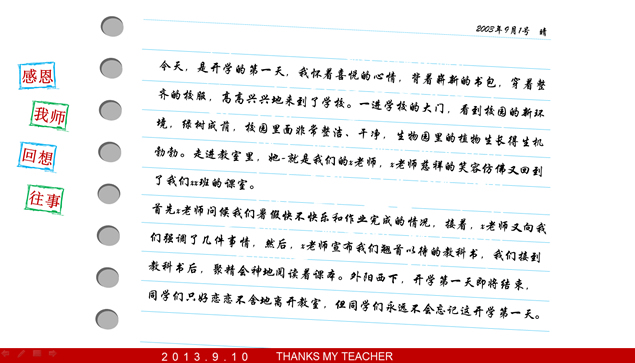 2003年9月1号 晴
今天，是开学的第一天，我怀着喜悦的心情，背着崭新的书包，穿着整
齐的校服，高高兴兴地来到了学校。一进学校的大门，看到校园的新环
境，绿树成荫，校园里面非常整洁、干净，生物园里的植物生长得生机
勃勃。走进教室里，她-就是我们的z老师，z老师慈祥的笑容仿佛又回到
了我们zz班的课室。
首先z老师问候我们暑假快不快乐和作业完成的情况，接着，z老师又向我
们强调了几件事情，然后，z老师宣布我们翘首以待的教科书，我们接到
教科书后，聚精会神地阅读着课本。外阳西下，开学第一天即将结束，
同学们只好恋恋不舍地离开教室，但同学们永远不会忘记这开学第一天。
感恩
我师
回想
往事
2013.9.10 THANKS MY TEACHER